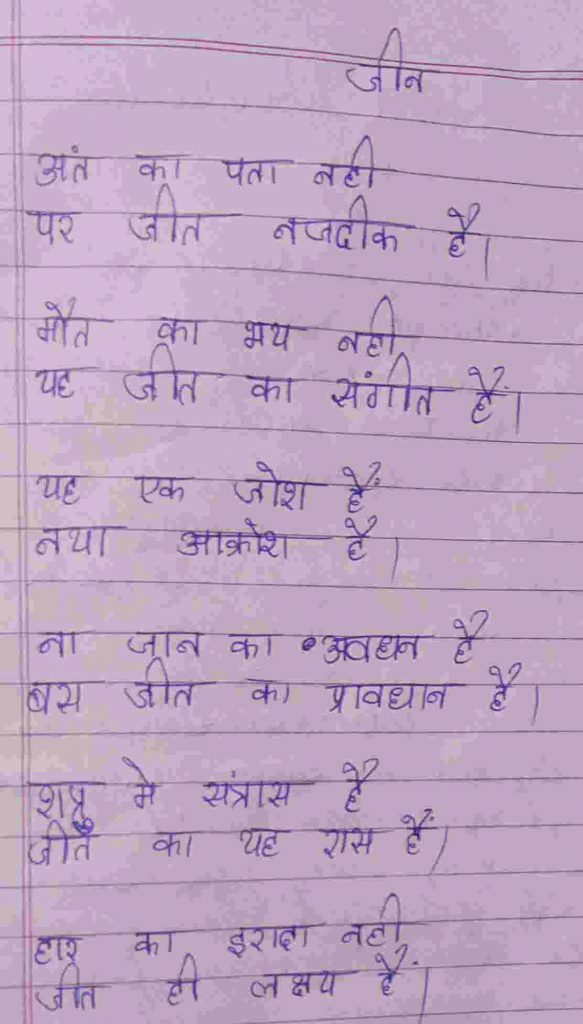 जीत
अंत का पता नही
पर जीत नजदीक है।
मौत का भय नही
यह जीत का संगीत हैं।
यह एक जोश हैं
नया आक्रोश है।
ना जान का अवधान है
बस जीत का प्रावधान है।
शत्रु मे संत्रास है
जीत का यह रास हैं।
हार का इरादा नही
जीत ही लक्षय हैं।